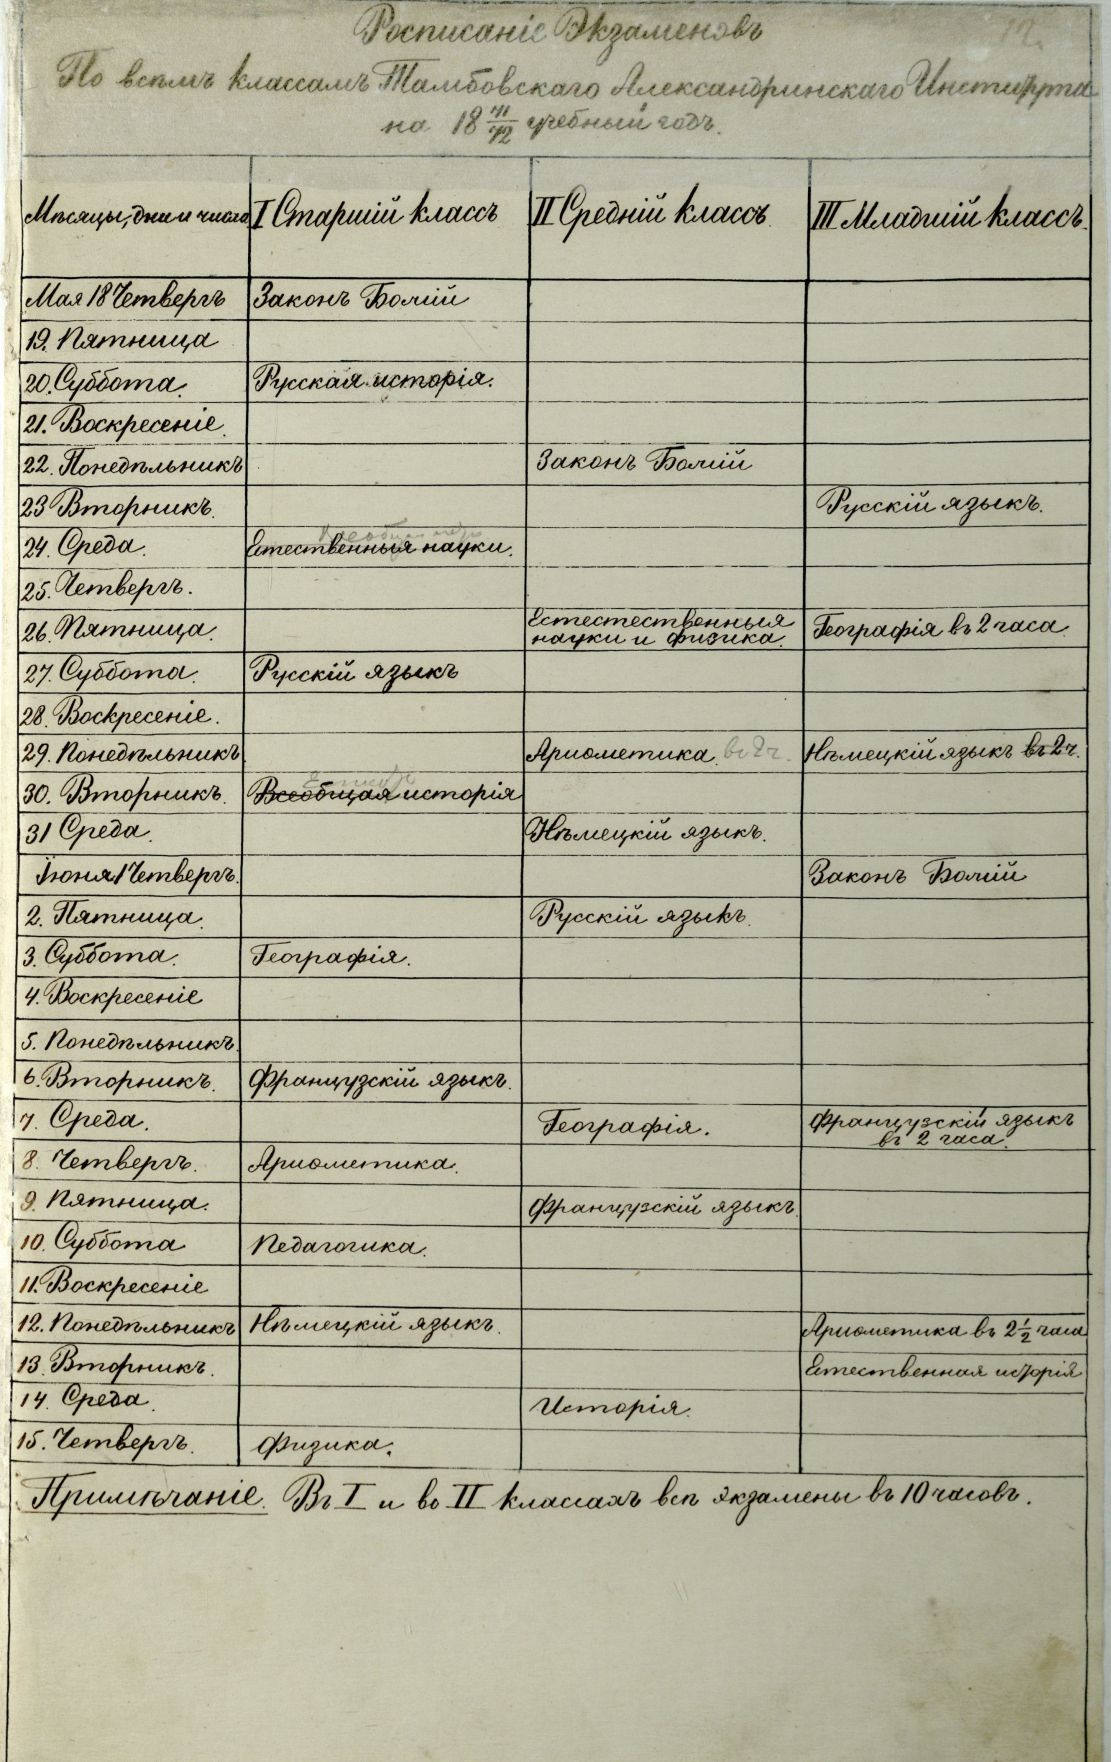 Росписаніе Экзаменовъ
12.
По всѣмъ классамъ Тамбовскаго Александринскаго Института
на 18 71/72 учебный годъ.
Мѣсяцы, дни и числа I Старшій классъ II Средній классъ III Младшій классъ.
Мая 18 Четвергъ Законъ Божій
19. Пятница
20. Суббота. Русская исторія.
21. Воскресеніе.
22. Понедѣльникъ Законъ Божій
23 Вторникъ. Русскій языкъ.
24. Среда. Естественныя науки.
25. Четвергъ.
26. Пятница. Естестественныя Географія въ 2 часа.
науки и физика.
27. Суббота. Русскій языкъ
28. Воскресеніе.
29. Понедѣльникъ Ариѳметика. въ 2 ч. Нѣмецкій языкъ въ 2 ч.
30. Вторникъ. Всеобщая исторія
31 Среда. Нѣмецкій языкъ.
Іюня 1 Четвергъ. Законъ Божій
2. Пятница. Русскій языкъ.
3. Суббота. Географія.
4. Воскресеніе
5. Понедѣльникъ.
6. Вторникъ. Французскій языкъ.
7. Среда. Географія. Французскій языкъ
въ 2 часа.
8. Четвергъ. Ариѳметика.
9. Пятница. Французскій языкъ.
10. Суббота Педагогика.
11. Воскресеніе
12. Понедѣльникъ Нѣмецкій языкъ. Ариѳметика въ 2 1/2 часа
13. Вторникъ. Естественная исторія
14. Среда. Исторія.
15. Четвергъ. Физика.
Примѣчаніе. Въ I и во II классахъ всѣ экзамены въ 10 часовъ.